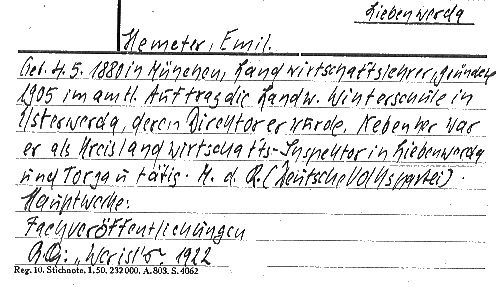 Liebenwerda
Hemeter, Emil.
Geb. 4. 5. 1880 in München, Landwirtschaftslehrer, gründete
1905 im amtl. Auftrag die Landw. Winterschule in
Elsterwerda, deren Direktor er wurde. Nebenher war
er als Kreislandwirtschafts-Inspektor in Liebenwerda
und Torgau tätig. M. d. R. (Deutsche Volkspartei).
Hauptwerke:
Fachveröffentlichungen
Qu: "Wer ist's" 1922
Reg. 10. Stichnote. I. 50. 232000. A. 803. S. 4062